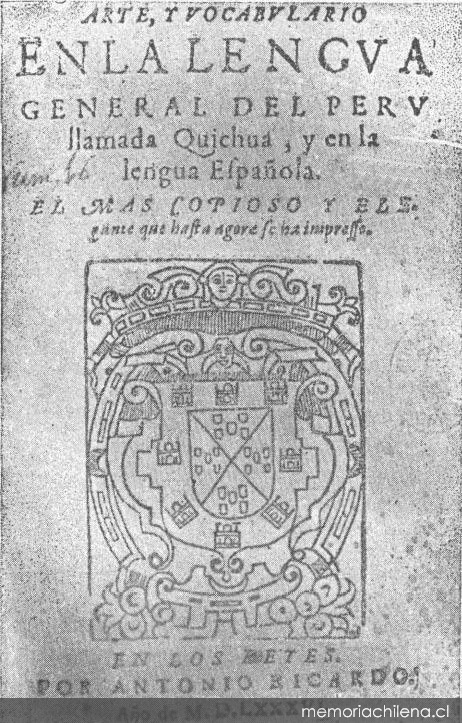 ARTE, Y VOCABVLARIO
EN LA LENGVA
GENERAL DEL PERV
llamada Quichua, y en la
lengua Española.
EL MAS COPIOSO Y ELE-
gante que hasta agora se ha impresso.
EN LOS REYES.
POR ANTONIO RICARDO.
Año de M. D. LXXX
memoriachilena.cl